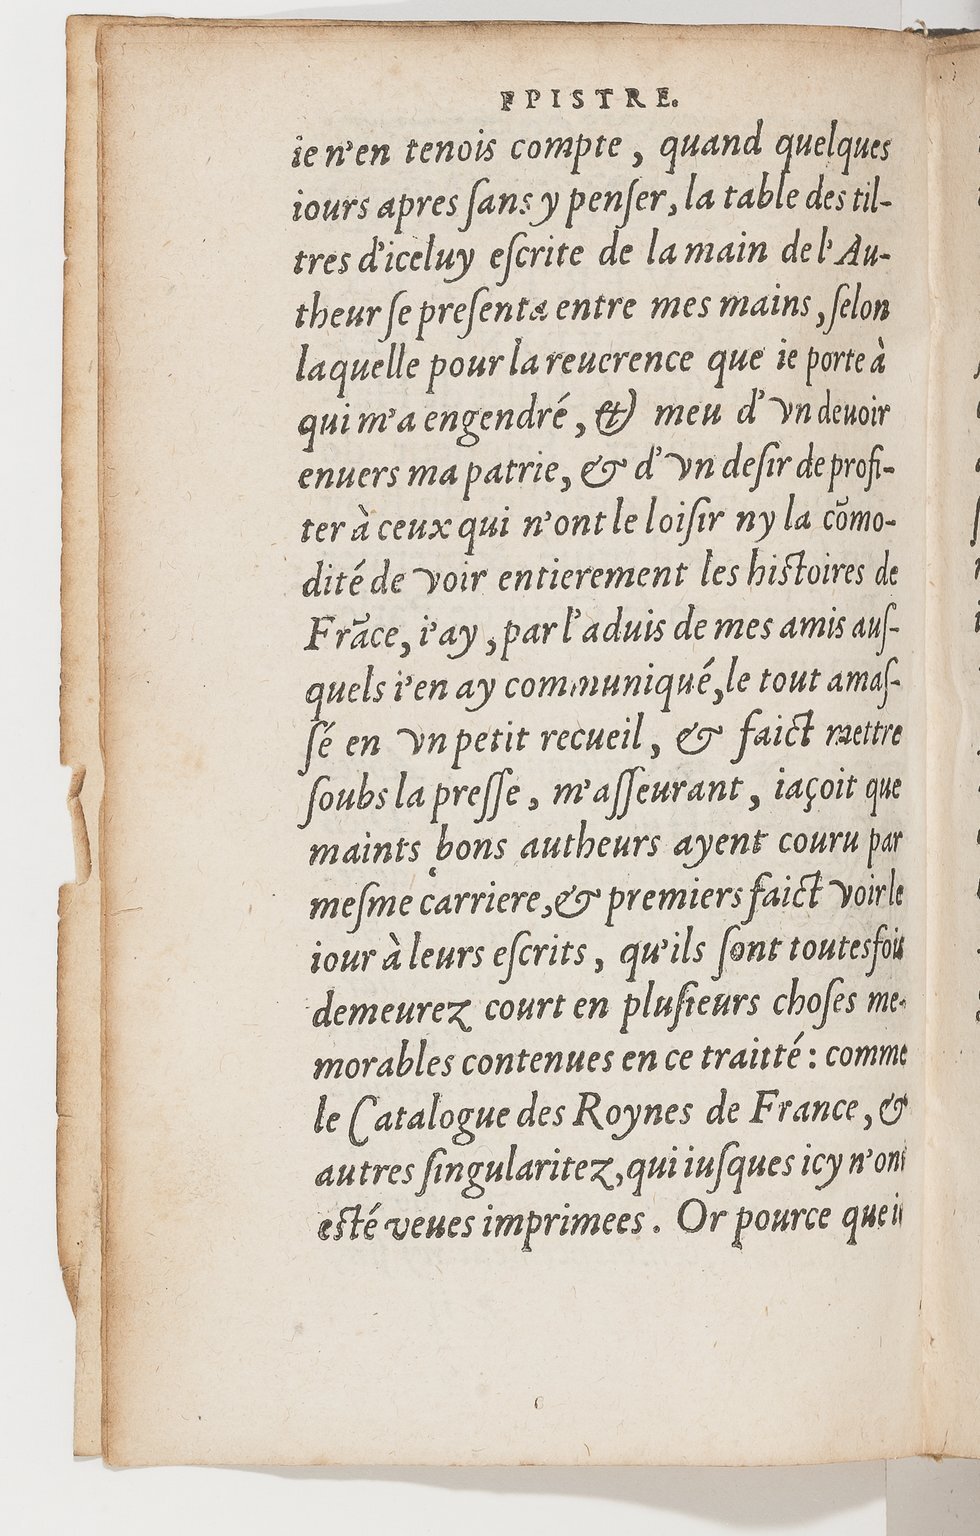 EPISTRE.
ie n'en tenois compte, quand quelques
iours apres ſans y penſer, la table des til-
tres d'iceluy eſcrite de la main de l'Au-
theur ſe preſenta entre mes mains, ſelon
laquelle pour la reuerence que ie porte à
qui m'a engendré, & meu d'vn deuoir
enuers ma patrie, & d'vn deſir de profi-
ter à ceux qui n'ont le loiſir ny la cõmo-
dité de voir entierement les hiſtoires de
Frãce, i'ay, par l'aduis de mes amis auſ-
quels i'en ay communiqué, le tout amaſ-
ſé en vn petit recueil, & faict mettre
ſoubs la preſſe, m'aſſeurant, iaçoit que
maints bons autheurs ayent couru par
meſme carriere, & premiers faict voir le
iour à leurs eſcrits, qu'ils ſont toutesfois
demeurez court en pluſieurs choſes me-
morables contenues en ce traitté: comme
le Catalogue des Roynes de France, &
autres ſingularitez, qui iuſques icy n'ont
eſté veues imprimees. Or pource que ie